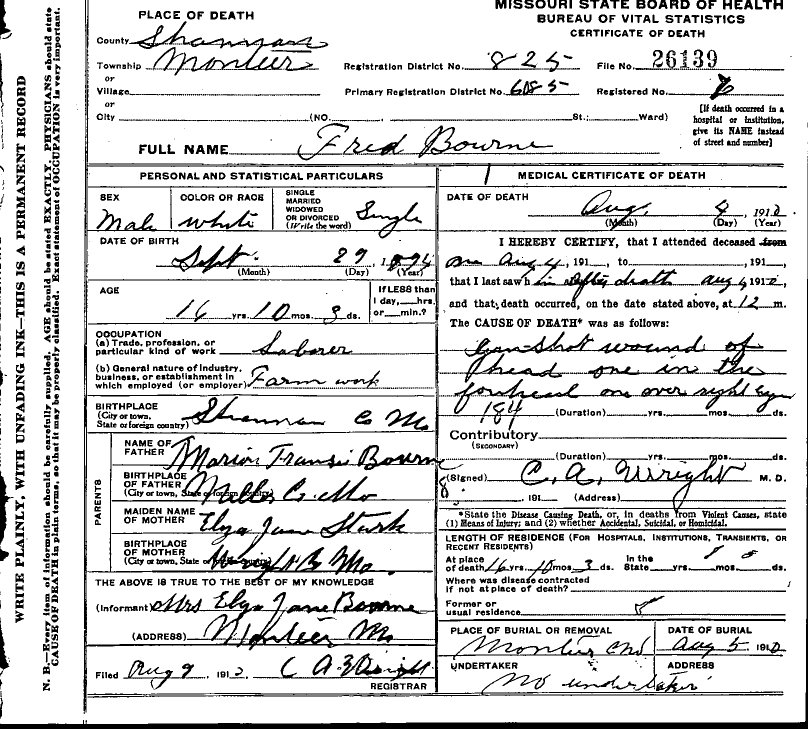 MISSOURI STATE BOARD OF HEALTH
BUREAU OF VITAL STATISTICS
CERTIFICATE OF DEATH
PLACE OF DEATH
County Shannon
Township Monteer
or
Village
or
City (NO. , St.; Ward)
Registration District No. 825 File No. 26139
Primary Registration District No. 6085 Registered No.
[If death occurred in a
hospital or institution,
give its NAME instead
of street and number]
FULL NAME Fred Bourne
PERSONAL AND STATISTICAL PARTICULARS
SEX
Male
COLOR OR RACE
white
SINGLE
MARRIED
WIDOWED
OR DIVORCED
(Write the word)
Single
DATE OF BIRTH
Sept. 29, 1894
(Month) (Day) (Year)
AGE
16 yrs. 10 mos. 3 ds.
If LESS than
1 day, hrs.
or min.?
OCCUPATION
(a) Trade, profession, or
particular kind of work Laborer
(b) General nature of industry,
business, or establishment in
which employed (or employer) Farm work
BIRTHPLACE
(City or town,
State or foreign country) Shannon Co Mo
PARENTS
NAME OF
FATHER Marion Bourne
BIRTHPLACE
OF FATHER
(City or town, State or foreign country) Miller Co. Mo
MAIDEN NAME
OF MOTHER Elza Jane Stark
BIRTHPLACE
OF MOTHER
(City or town, State or foreign country) Wright Co Mo.
THE ABOVE IS TRUE TO THE BEST OF MY KNOWLEDGE
(Informant) Mrs Elza Jane Bourne
(ADDRESS) Monteer Mo
Filed Aug 9, 191 C A Wright
REGISTRAR
MEDICAL CERTIFICATE OF DEATH
DATE OF DEATH
Aug. 4, 191
(Month) (Day) (Year)
I HEREBY CERTIFY, that I attended deceased from
on Aug 4, 191 , to , 191 ,
that I last saw h after death aug 4 191 ,
and that death occurred, on the date stated above, at 12 m.
The CAUSE OF DEATH* was as follows:
Gun-shot wound of
head one in the
forehead one over right Eye
184 (Duration) yrs. mos. ds.
Contributory
(SECONDARY)
(Duration) yrs. mos. ds.
(Signed) C. A. Wright M. D.
, 191 (Address)
*State the Disease Causing Death, or, in deaths from Violent Causes, state
(1) Means of Injury; and (2) whether Accidental, Suicidal, or Homicidal.
LENGTH OF RESIDENCE (FOR HOSPITALS, INSTITUTIONS, TRANSIENTS, OR
RECENT RESIDENTS)
At place
of death 16 yrs. 10 mos. 3 ds. In the
State yrs. mos. ds.
Where was disease contracted
if not at place of death?
Former or
usual residence
PLACE OF BURIAL OR REMOVAL
Monteer
DATE OF BURIAL
Aug 5 191
UNDERTAKER
No undertaker
ADDRESS
WRITE PLAINLY, WITH UNFADING INK—THIS IS A PERMANENT RECORD
N. B.—Every item of information should be carefully supplied. AGE should be stated EXACTLY. PHYSICIANS should state
CAUSE OF DEATH in plain terms, so that it may be properly classified. Exact statement of OCCUPATION is very important.